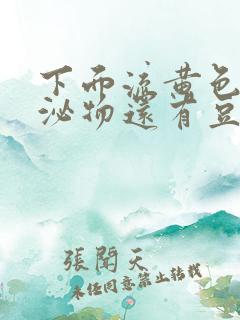 下面流黄色
泌物还有豆
張聞天
未经同意禁止转载